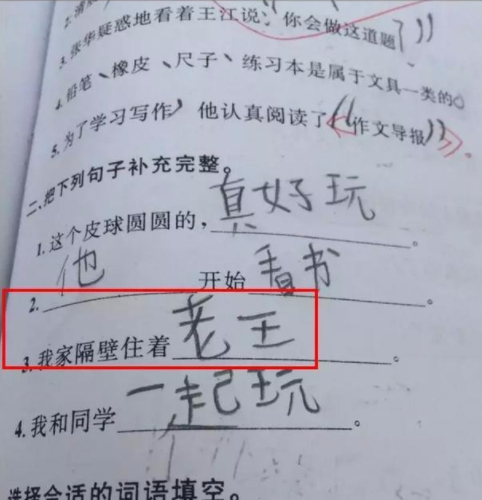 3.张华疑惑地看着王江说:“你会做这道题?”
4.铅笔、橡皮、尺子、练习本是属于文具一类的。
5.为了学习写作,他认真阅读了《作文导报》。
二、把下列句子补充完整。
1.这个皮球圆圆的,真好玩。
2.他开始看书。
3.我家隔壁住着老王。
4.我和同学一起玩。
选择合适的词语填空。